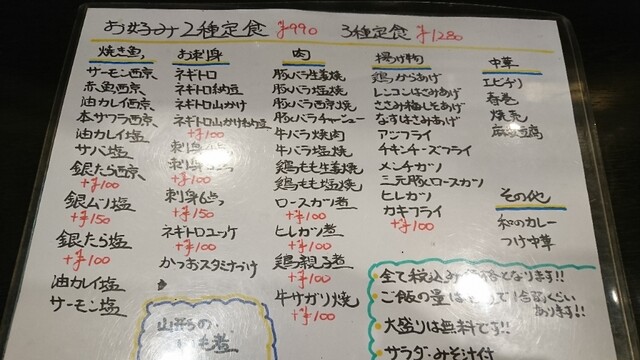 お好み2種定食 ¥990 3種定食 ¥1280
焼き魚
サーモン西京
赤魚西京
油カレイ西京
本サワラ西京
油カレイ塩
サバ塩
銀たら西京
+¥100
銀ムツ塩
+¥150
銀たら塩
+¥100
油カレイ塩
サーモン塩
お刺身
ネギトロ
ネギトロ納豆
ネギトロ山かけ
ネギトロ山かけ納豆
+¥100
刺身
+¥100
刺身6点
+¥150
ネギトロユッケ
+¥100
かつおスタミナづけ
肉
豚バラ生姜焼
豚バラ塩焼
豚バラ西京焼
豚バラチャーシュー
牛バラ焼肉
牛バラ塩焼
鶏もも生姜焼
鶏もも塩焼
ロースカツ煮
+¥100
ヒレカツ煮
+¥100
鶏親子煮
+¥100
牛サガリ焼
+¥100
揚げ物
鶏からあげ
レンコンはさみあげ
ささみ梅しそあげ
なすはさみあげ
アジフライ
チキンチーズフライ
メンチカツ
三元豚ロースカツ
ヒレカツ
カキフライ
+¥100
中華
エビチリ
春巻
焼売
麻婆豆腐
その他
和のカレー
つけ中華
山形の
いも煮
・全て税込み価格となります!!
・ご飯の量は
あります!!
・大盛りは無料です!!
・サラダ・みそ汁付